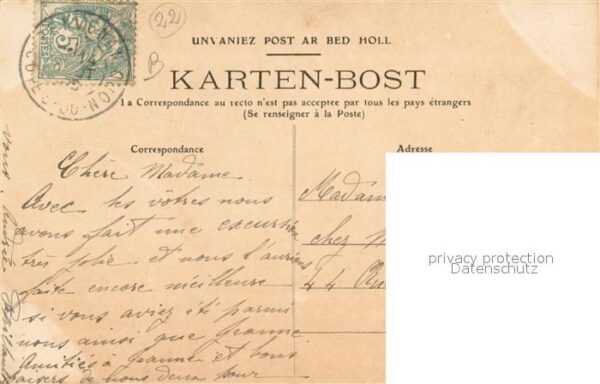 (22)
B
UNVANIEZ POST AR BED HOLL
KARTEN-BOST
La Correspondance au recto n'est pas acceptee par tous les pays étrangers
(Se renseigner à la Poste)
Correspondance
Adresse
Chère Madame
Avec les vôtres nous
avons fait une excursion
très jolie et nous l'aurions
faite encore meilleure
si vous aviez été parmi
nous ainsi que Jeanne.
Amitiés à Jeanne et bons
baisers de nous deux pour
vous.
Madam
chez
44
privacy protection
Datenschutz